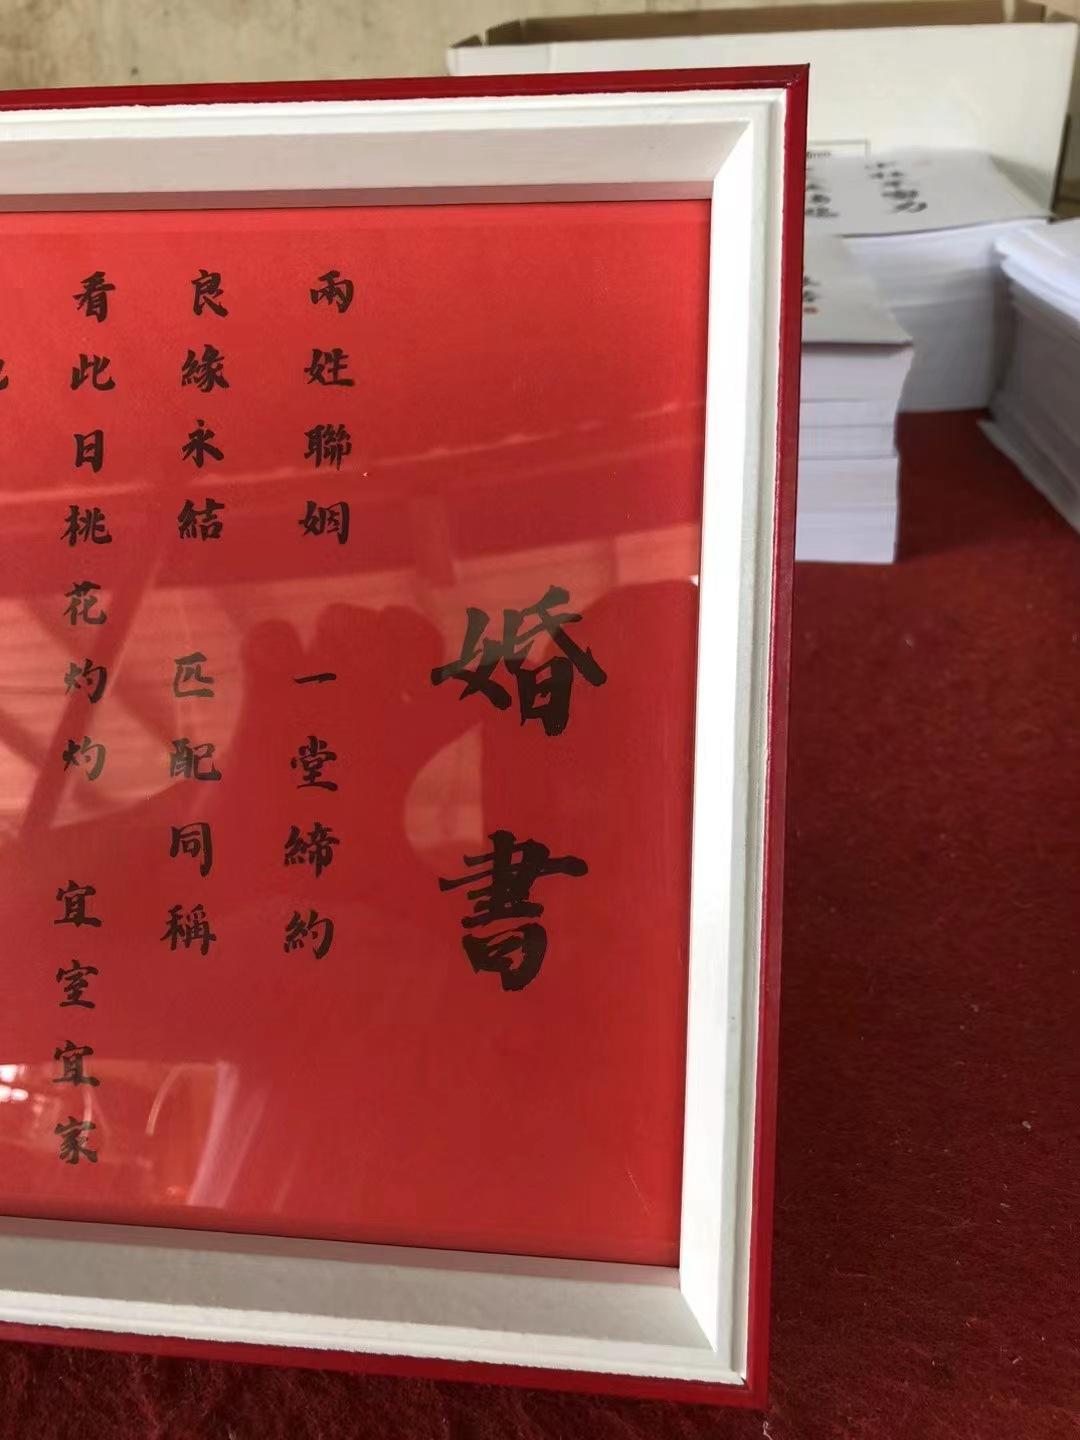 婚書
兩姓聯姻 一堂締約
良緣永結 匹配同稱
看此日桃花灼灼 宜室宜家